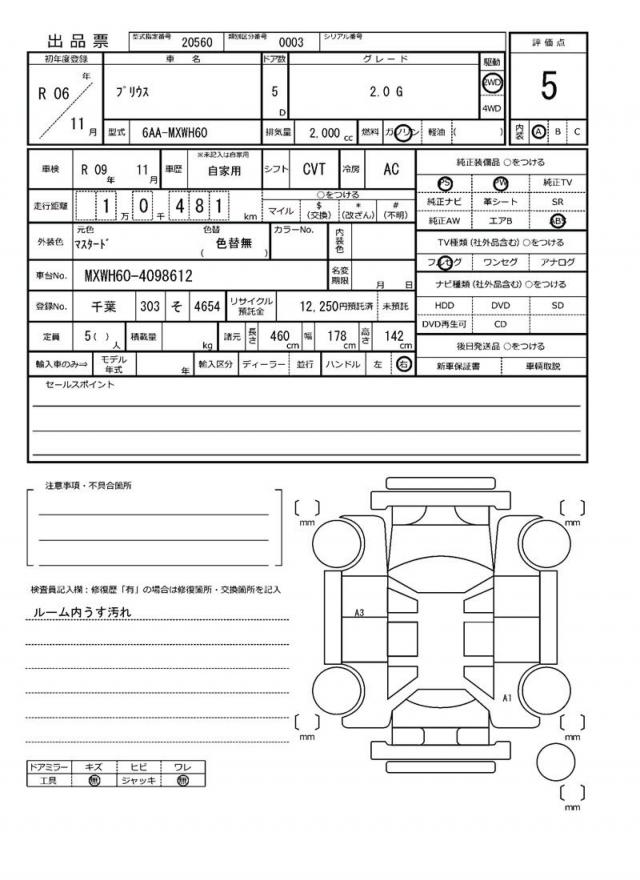 出品票 型式指定番号 20560 類別区分番号 0003 シリアル番号
評価点
5
内装 A B C
初年度登録 車名 ドア数 グレード 駆動
R 06 年 11 月 プリウス 5 D 2.0 G 2WD 4WD
型式 6AA-MXWH60 排気量 2,000 cc 燃料 ガソリン 軽油 ( )
車検 R 09 年 11 月 車歴 ※未記入は自家用 自家用 シフト CVT 冷房 AC
走行距離 1 万 0 千 4 8 1 km
○をつける
マイル $ (交換) * (改ざん) # (不明)
外装色 元色 マスタード 色替 ( 色替無 ) カラーNo. 内装色
車台No. MXWH60-4098612 名変期限 月 日
登録No. 千葉 303 そ 4654 リサイクル預託金 12,250円預託済 未預託
定員 5 ( ) 人 積載量 kg 諸元 長さ 460 cm 幅 178 cm 高さ 142 cm
輸入車のみ⇒ モデル年式 年 輸入区分 ディーラー 並行 ハンドル 左 右
純正装備品 ○をつける
PS PW 純正TV
純正ナビ 革シート SR
純正AW エアB ABS
TV種類 (社外品含む) ○をつける
フルセグ ワンセグ アナログ
ナビ種類 (社外品含む) ○をつける
HDD DVD SD
DVD再生可 CD
後日発送品 ○をつける
新車保証書 車輌取説
セールスポイント
注意事項・不具合箇所
検査員記入欄：修復歴「有」の場合は修復箇所・交換箇所を記入
ルーム内うす汚れ
ドアミラー キズ ヒビ ワレ
工具 無 ジャッキ 無
mm mm
A3
A1
mm mm
mm